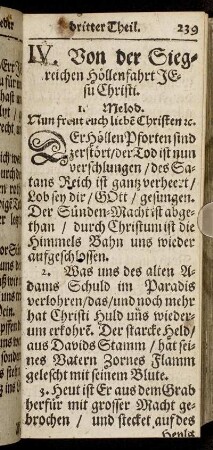 dritter Theil. 239
IV. Von der Sieg-
reichen Höllenfahrt JE-
su Christi.
1. Melod.
Nun freut euch liebē Christen ꝛc.
DEr Höllen Pforten sind
zerstört / der Tod ist nun
verschlungen / des Sa-
tans Reich ist gantz verheert /
Lob sey dir / GOtt / gesungen.
Der Sünden-Macht ist abge-
than / durch Christum ist die
Himmels Bahn uns wieder
aufgeschlossen.
2. Was uns des alten A-
dams Schuld im Paradis
verlohren / das / und noch mehr
hat Christi Huld uns wieder-
um erkohrē. Der starcke Held /
aus Davids Stamm / hat sei-
nes Vatern Zornes Flamm
gelescht mit seinem Blute.
3. Heut ist Er aus dem Grab
herfür mit grosser Macht ge-
brochen / und stecket auf des